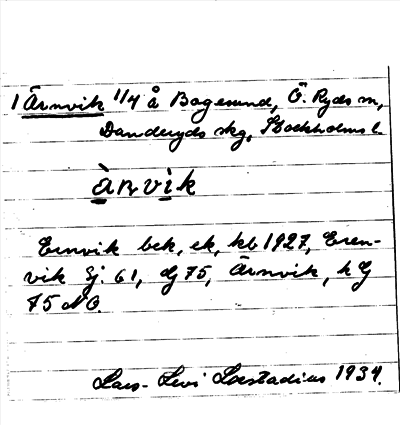 1 Ärnvik 1/4 å Bogesund, Ö. Ryds sn,
Danderyds skg, Stockholms l.
àrvik
Ernvik bek, ek, kb 1927, Eren-
vik Sj: 61, dg 75, Ärnvik, h Gg
75 NO.
Lars-Levi Læstadius 1934.